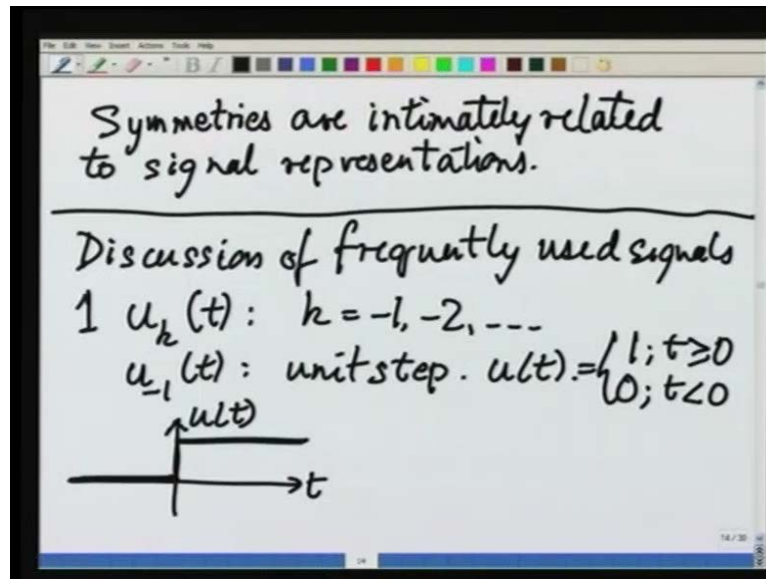 File Edit View Insert Actions Tools Help
Symmetries are intimately related
to signal representations.
Discussion of frequntly used signals
1 u_k(t): k = -1, -2, ---
u_-1(t): unit step. u(t).= { 1; t≥0
0; t<0
u(t)
t
14/30